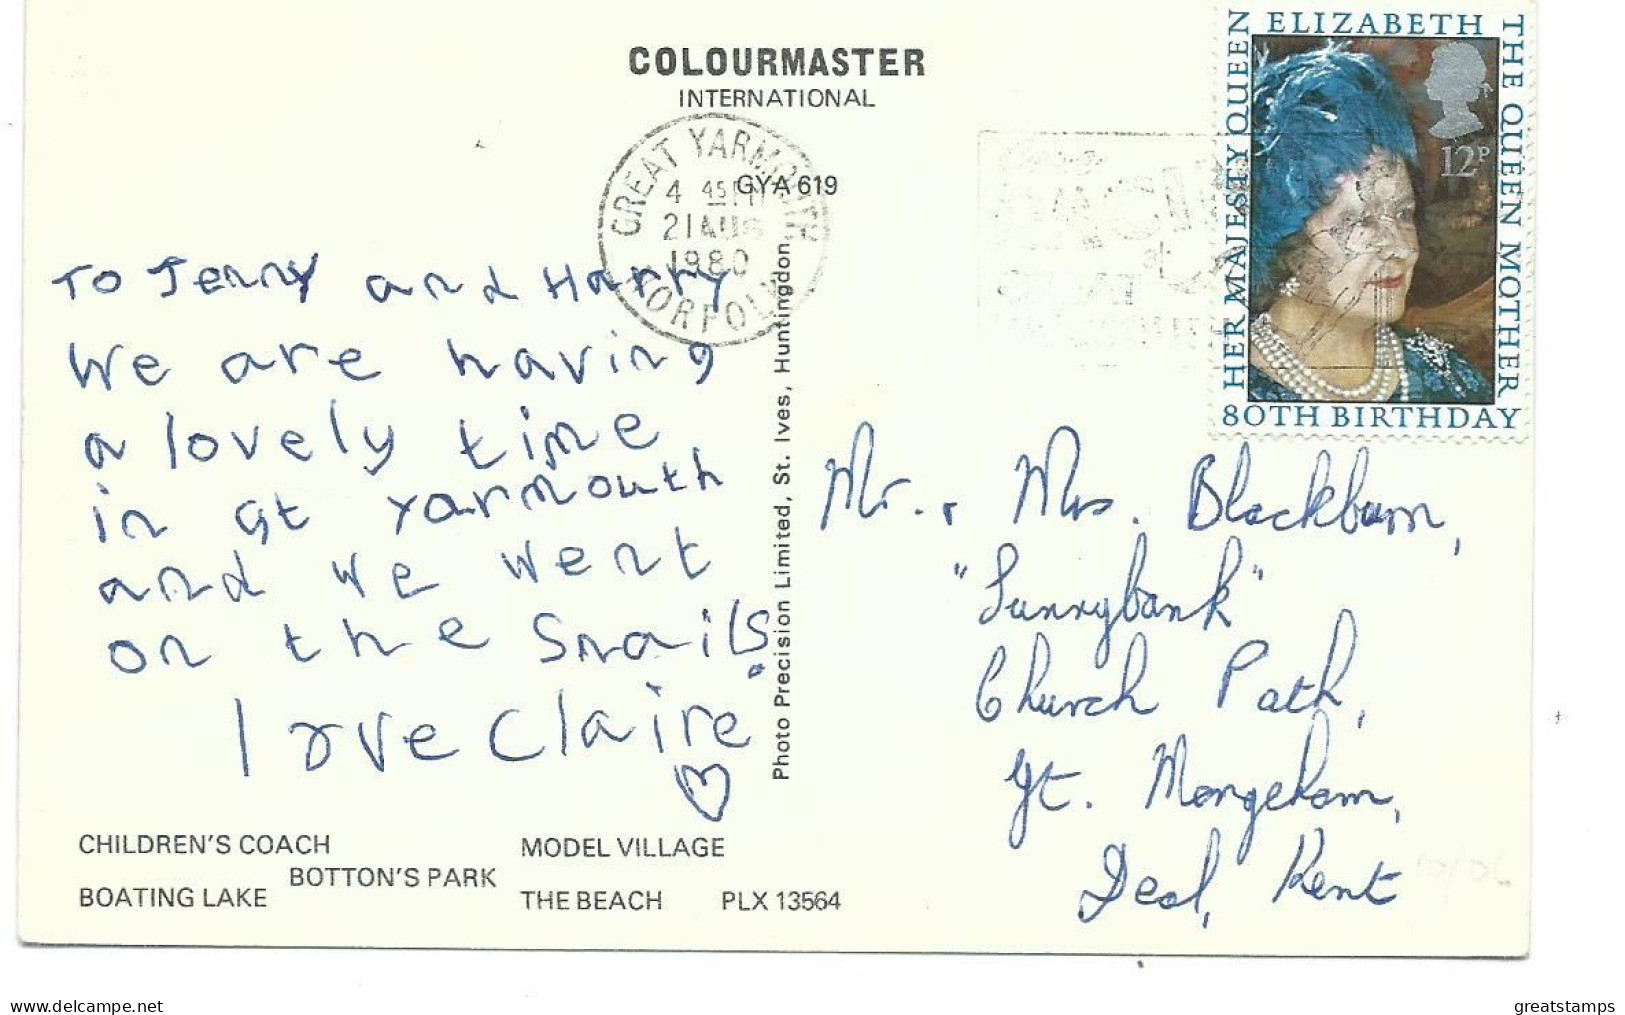 COLOURMASTER
INTERNATIONAL
GREAT YARMOUTH
4 45 PM
21 AUG
1980
NORFOLK
GYA 619
HER MAJESTY QUEEN
ELIZABETH
THE QUEEN MOTHER
12P
80TH BIRTHDAY
RACING
at
GREAT
To Jenny and Harry
We are having
a lovely time
in gt Yarmouth
and we went
on the Snails.
love Claire
Photo Precision Limited, St. Ives, Huntingdon.
Mr. & Mrs. Blackburn,
"Sunnybank"
Church Path,
Gt. Mongeham,
Deal, Kent
CHILDREN'S COACH
MODEL VILLAGE
BOTTON'S PARK
BOATING LAKE
THE BEACH
PLX 13564
the-millionaire.net
greatstamps